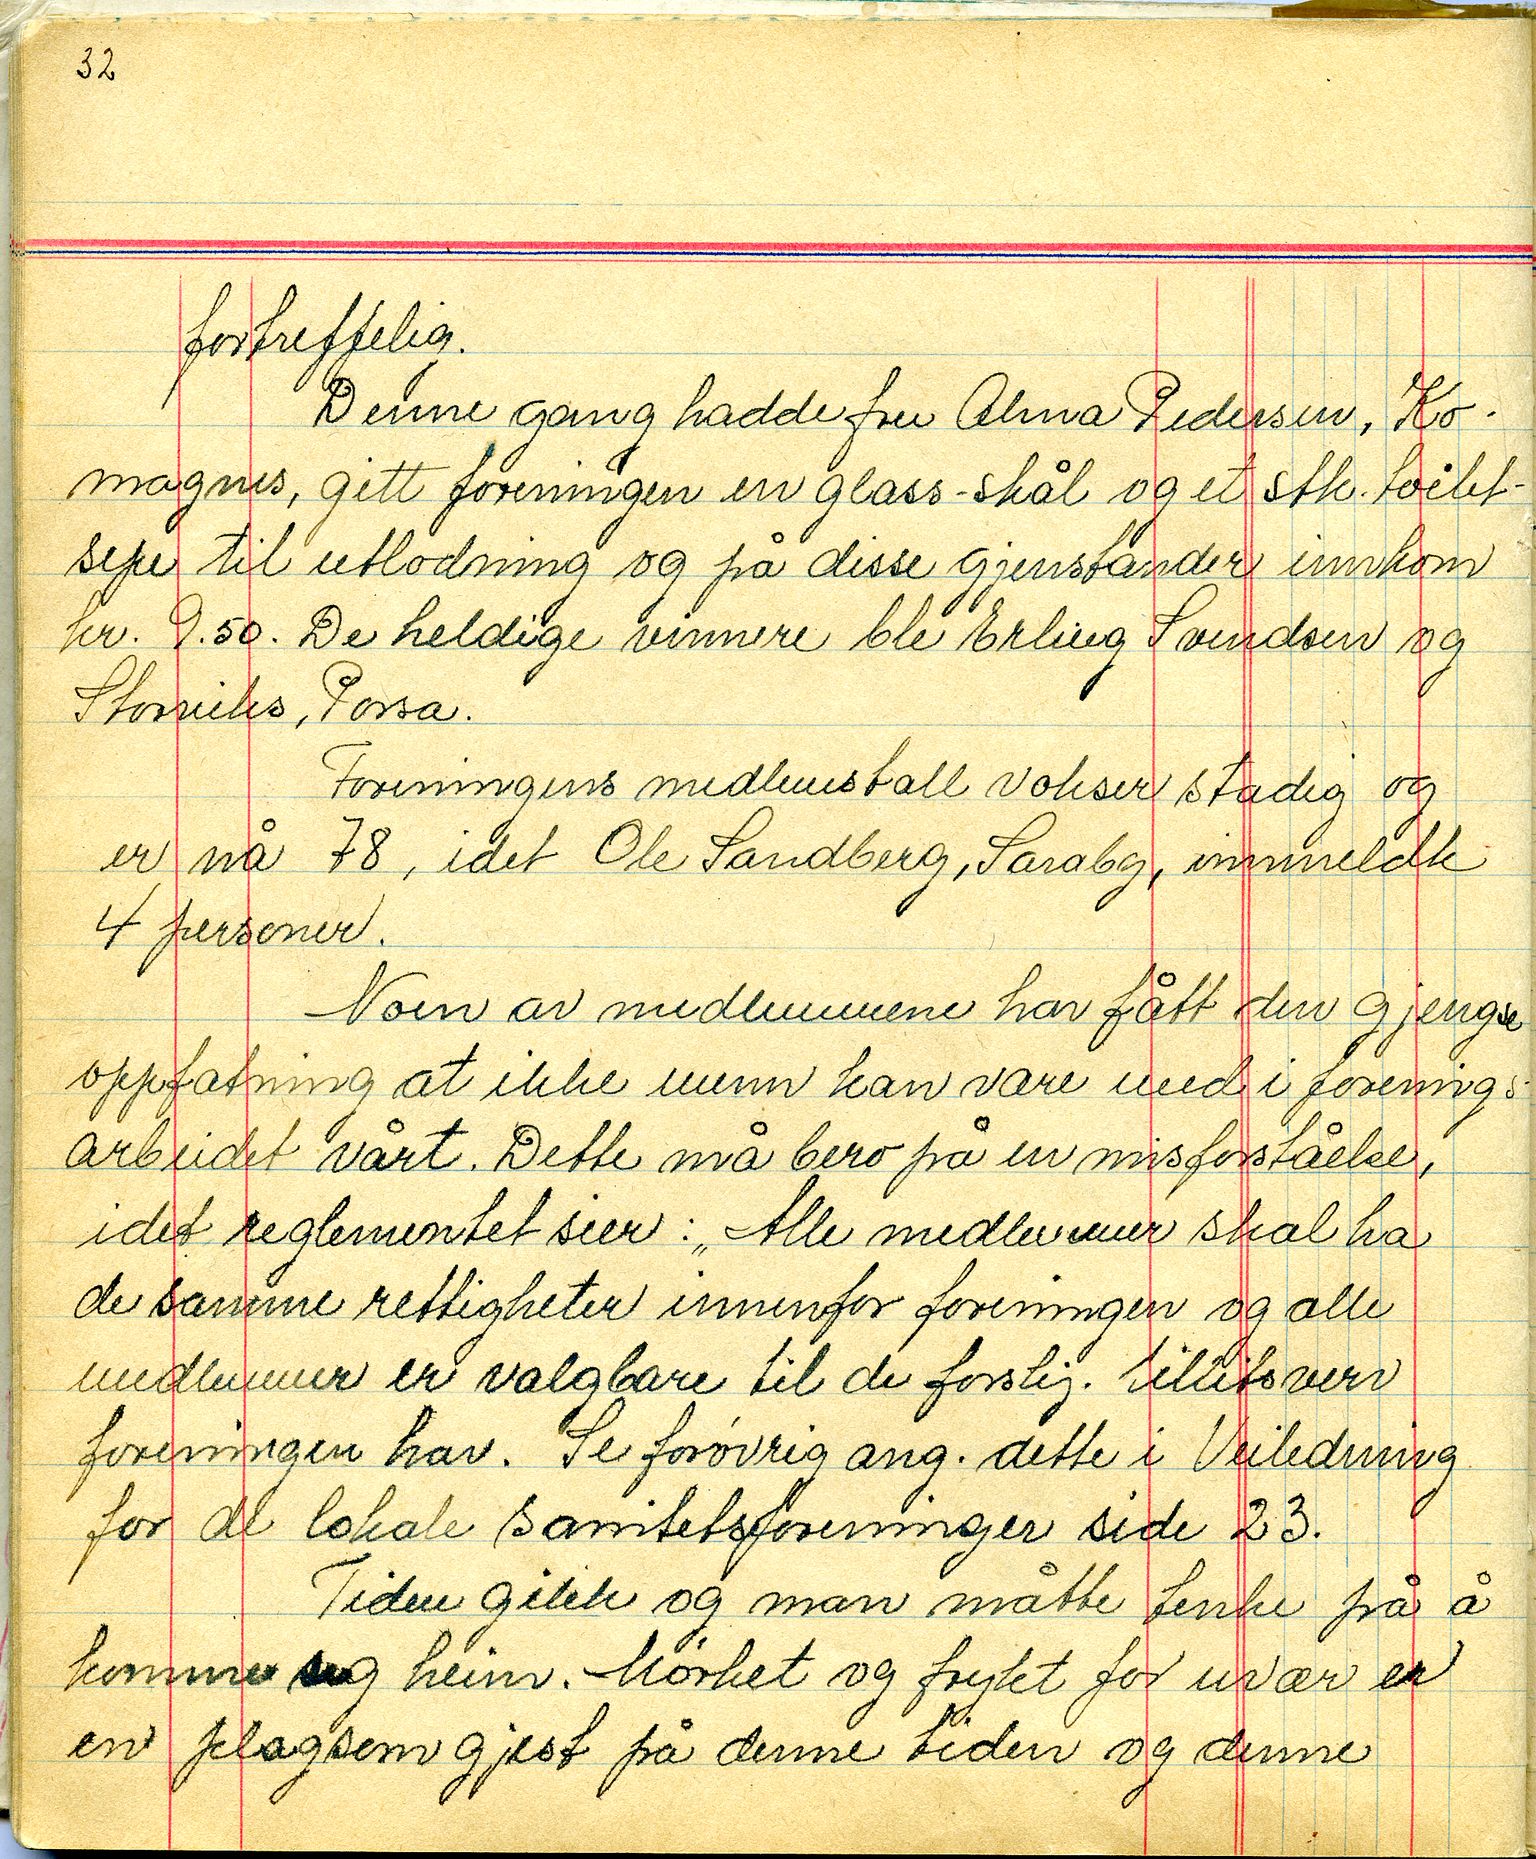 32
fortreffelig.
Denne gang hadde fru Alma Pedersen, Ko-
magnes, gitt foreningen en glass-skål og et stk. toilet-
sepe til utlodning og på disse gjenstander innkom
kr. 9.50. De heldige vinnere ble Erling Svendsen og
Storviks, Porsa.
Foreningens medlemstall vokser stadig og
er nå 78, idet Ole Sandberg, Saraby, innmeldte
4 personer.
Noen av medlemmene har fått den gjengse
oppfatning at ikke menn kan være med i forenings-
arbeidet vårt. Dette må bero på en misforståelse,
idet reglementet sier: „Alle medlemmer skal ha
de samme rettigheter innenfor foreningen og alle
medlemmer er valgbare til de forskj. tillitsverv
foreningen har. Se forøvrig ang. dette i Veiledning
for de lokale sanitetsforeninger side 23.
Tiden gikk og man måtte tenke på å
komme seg heim. Mörket og frykt for uvær er
en plagsom gjest på denne tiden og denne